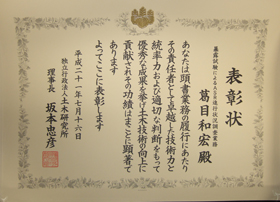 表彰状
暴露試験によるASR進行状況調査業務
葛目和宏殿
あなたは頭書業務の履行にあたり
その責任者として卓越した技術力と
統率力および適切な判断をもって
優秀な成果を挙げ土木技術の向上に
貢献されその功績はまことに顕著で
あります
よってここに表彰します
平成二十一年七月十六日
独立行政法人土木研究所
理事長 坂本忠彦